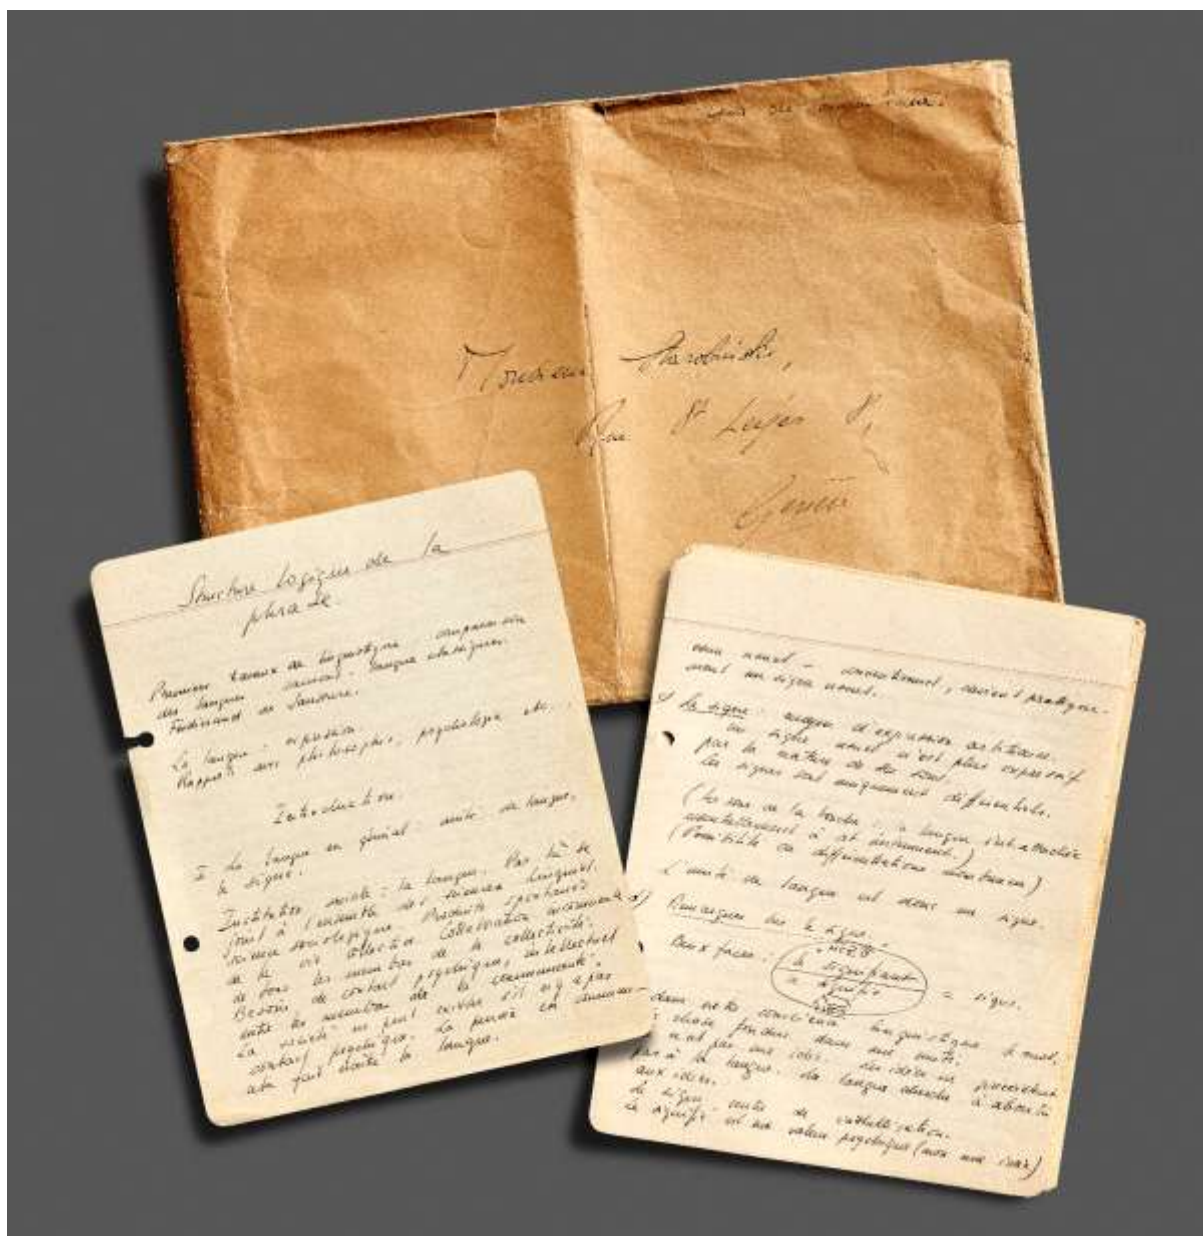 Monsieur Starobinski,
Rue St Léger 8,
Genève
Structure logique de la
phrase.
Premiers travaux de linguistique comparaison
des langues langues classiques.
Ferdinand de Saussure.
La langue : expression.
Rapport avec philosophie, psychologie etc.
Introduction.
I La langue en général unité de langue,
le signe.
Institution sociale = la langue. Par là se
joint à l'ensemble des sciences
science sociologique. Produits spontanés
de la vie collective Collaboration inconsciente
de tous les membres de la collectivité.
Besoins de contact psychique, intellectuel
entre les membres de la communauté.
La société ne peut exister s'il n'y a pas
contact psychique. La pensée en commun
a fait naître la langue.
usuel - conventionnel, pratique-
ment un signe usuel.
Le signe : moyen d'expression arbitraire.
Un signe usuel n'est plus expressif
par la nature de ses sons
les signes sont uniquement différentiels.
(Les sons de la bouche : la langue s'est attachée
à cet instrument.)
(Possibilité de différenciations)
L'unité de langue est donc un signe.
Remarques sur le signe.
Deux faces : le signifiant = signe.
le signifié
dans notre conscience linguistique
chose fondues dans une unité.
n'est pas une idée. les idées ne
pas à la langue. La langue à aboutir
aux idées.
Le signe unité de
Le signifié est une valeur psychique (non une idée)